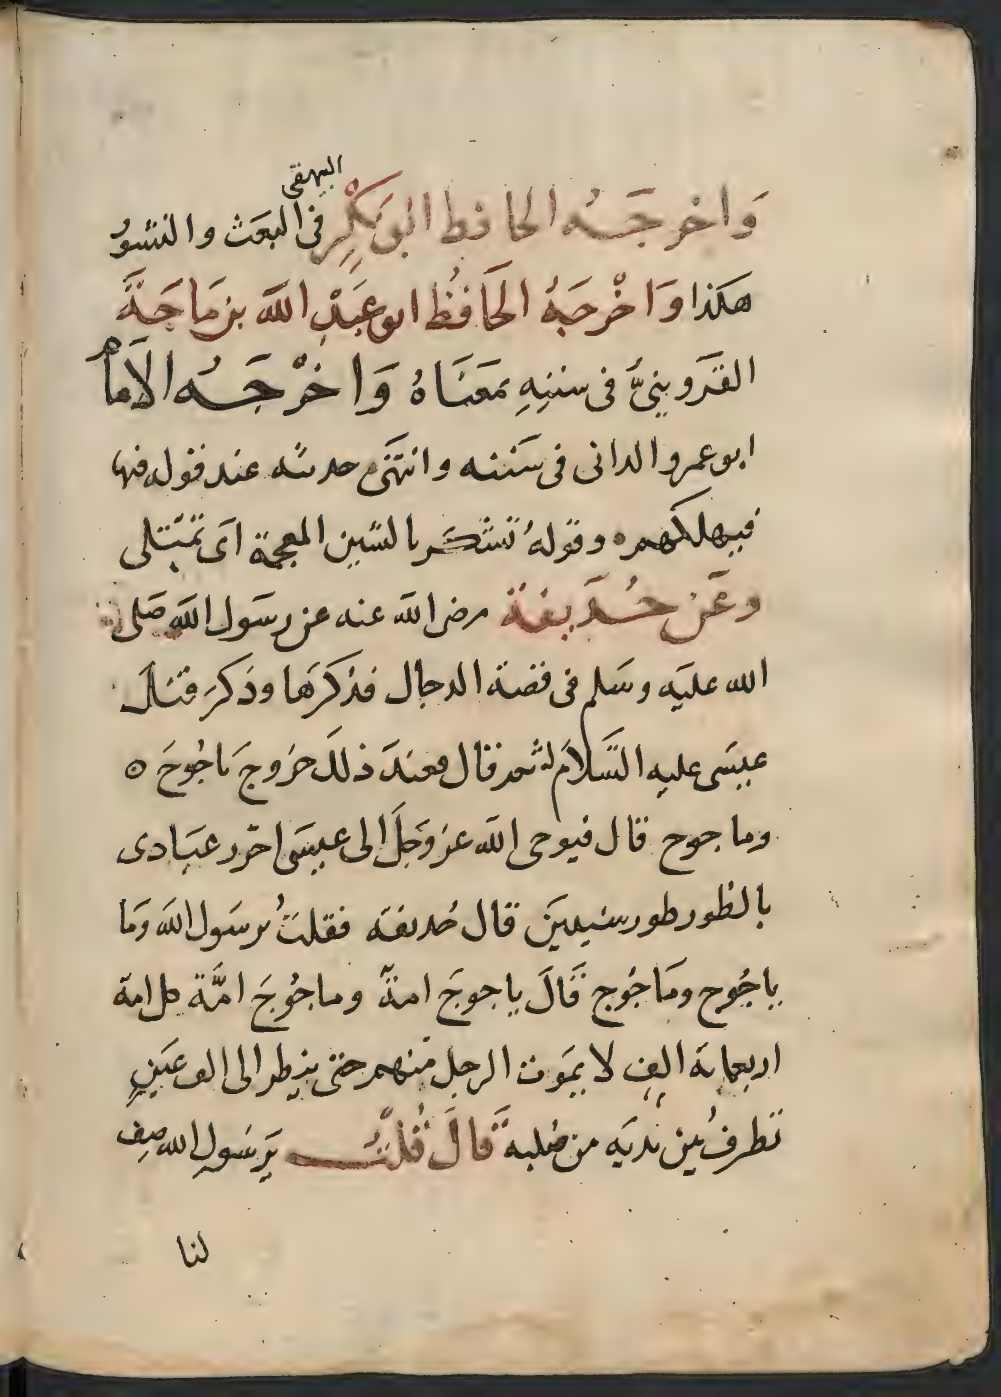 البيهقى
وَاخرجَهُ الحافظ ابو بَكْرٍ فى البعَث والنشوُ
هكذا وَاخْرجَهُ الحَافظُ ابو عَبدِ الله بن مَاجَةَ
القَزوينىُّ فى سننِهِ بمَعنَاهُ وَاخرْجَهُ الاَمامُ
ابو عمرو الدانى فى سَننه وانتَهَى حديثه عند قوله فيها
فيهلكهم وقولهُ تشكر بالشين المعجمة اَى تمتلى
وعَن حُذَيفة رضى الله عنه عن رسَول الله صَلى
الله عليَه وسَلم فى قصة الدجال فذكرَها وذكرَ قتلَ
عيسَى عليه السَّلاَم له ثم قال فعندَ ذلكَ خرَوجَ ياجُوجَ ه
وماجوج قال فيوحى الله عز وَجلَ الى عيسَى احرر عبَادى
بالطور طور سنيينَ قال حُذيفه فقلتُ يرسَول الله وَما
ياجُوج ومَاجُوج قَالَ ياجوجَ امةً وماجُوجَ امَّة كل امة
اربعماية الفِ لا يمَوت الرجل منهم حتى ينظر الى الف عَينٍ
تطرفُ بين يديَه من صُلبه قَالَ قُلْتُ يَرسَولِ الله صِف
لنا